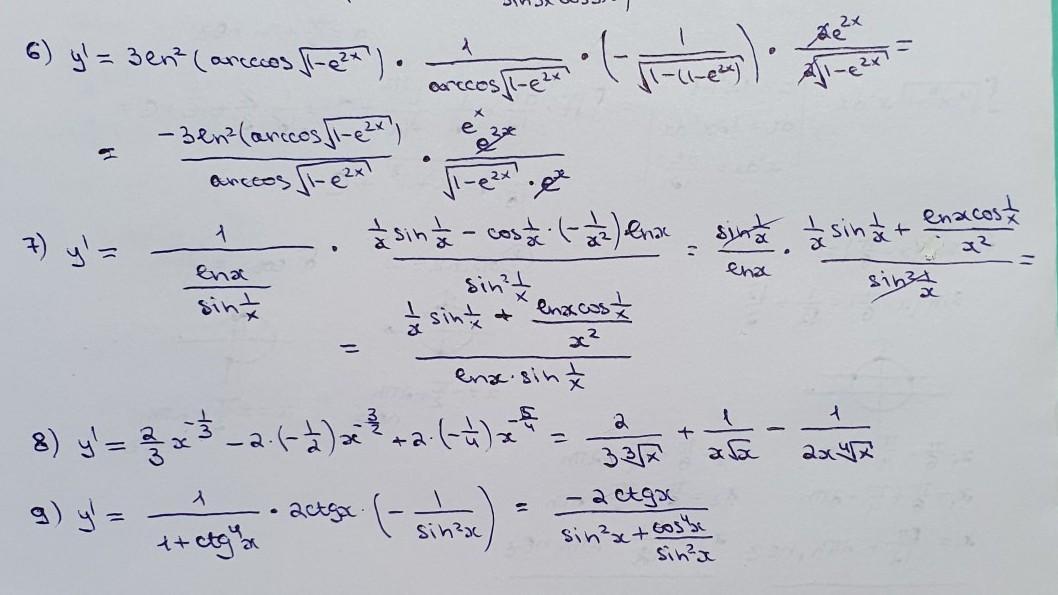 sin3x cos3x
6) y' = 3ln²(arccos√(1-e^(2x))) · 1/(arccos√(1-e^(2x))) · (-1/√(1-(1-e^(2x)))) · 2e^(2x)/(2√(1-e^(2x))) =
= -3ln²(arccos√(1-e^(2x)))/(arccos√(1-e^(2x))) · e^x e^(2x)/(√(1-e^(2x)) · e^x)
7) y' = 1/(lnx/(sin 1/x)) · (1/x sin 1/x - cos 1/x · (-1/x²) lnx)/(sin² 1/x) = (sin 1/x)/(lnx) · (1/x sin 1/x + (lnx cos 1/x)/x²)/(sin² 1/x) =
= (1/x sin 1/x + (lnx cos 1/x)/x²)/(lnx · sin 1/x)
8) y' = 2/3 x^(-1/3) - 2·(-1/2)x^(-3/2) + 2·(-1/4)x^(-5/4) = 2/(3∛x) + 1/(x√x) - 1/(2x∜x)
9) y' = 1/(1+ctg⁴x) · 2ctgx · (-1/(sin²x)) = (-2ctgx)/(sin²x + (cos⁴x)/(sin²x))